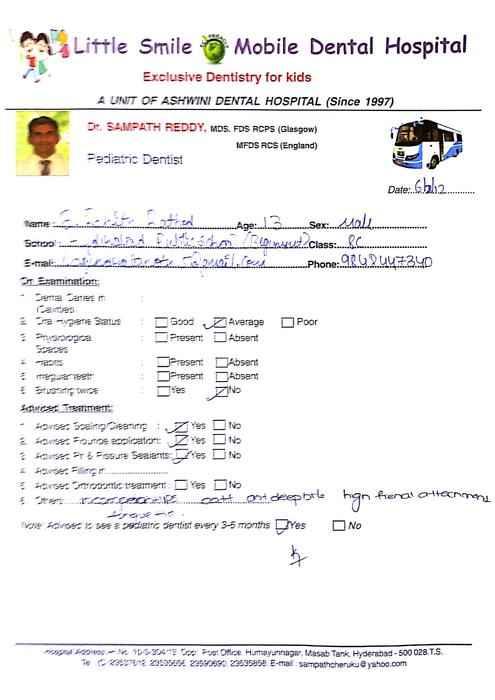 Little Smile Mobile Dental Hospital
Exclusive Dentistry for kids
A UNIT OF ASHWINI DENTAL HOSPITAL (Since 1997)
Dr. SAMPATH REDDY, MDS. FDS RCPS (Glasgow)
MFDS RCS (England)
Pediatric Dentist
Date:
Name: Age: 13 Sex: Male
School: Public School (Begumpet) Class: 8C
E-mail: Phone: 9848447340
On Examination:
1 Dental Caries in
(Cavities)
2 Oral Hygiene Status : Good Average Poor
3 Physiological : Present Absent
Spaces
4 Habits : Present Absent
5 Irregular teeth : Present Absent
6 Brushing twice : Yes No
Advised Treatment:
1 Advised Scaling/Cleaning : Yes No
2 Advised Flouride application: Yes No
3 Advised Pit & Fissure Sealants: Yes No
4 Advised Filling in
5 Advised Orthodontic treatment : Yes No
6 Others high frenal attachment
Note: Advised to see a pediatric dentist every 3-6 months Yes No
Hospital Address :- No. Opp. Post Office, Humayunnagar, Masab Tank, Hyderabad - 500 028.T.S.
23590690, E-mail : sampathcheruku@yahoo.com